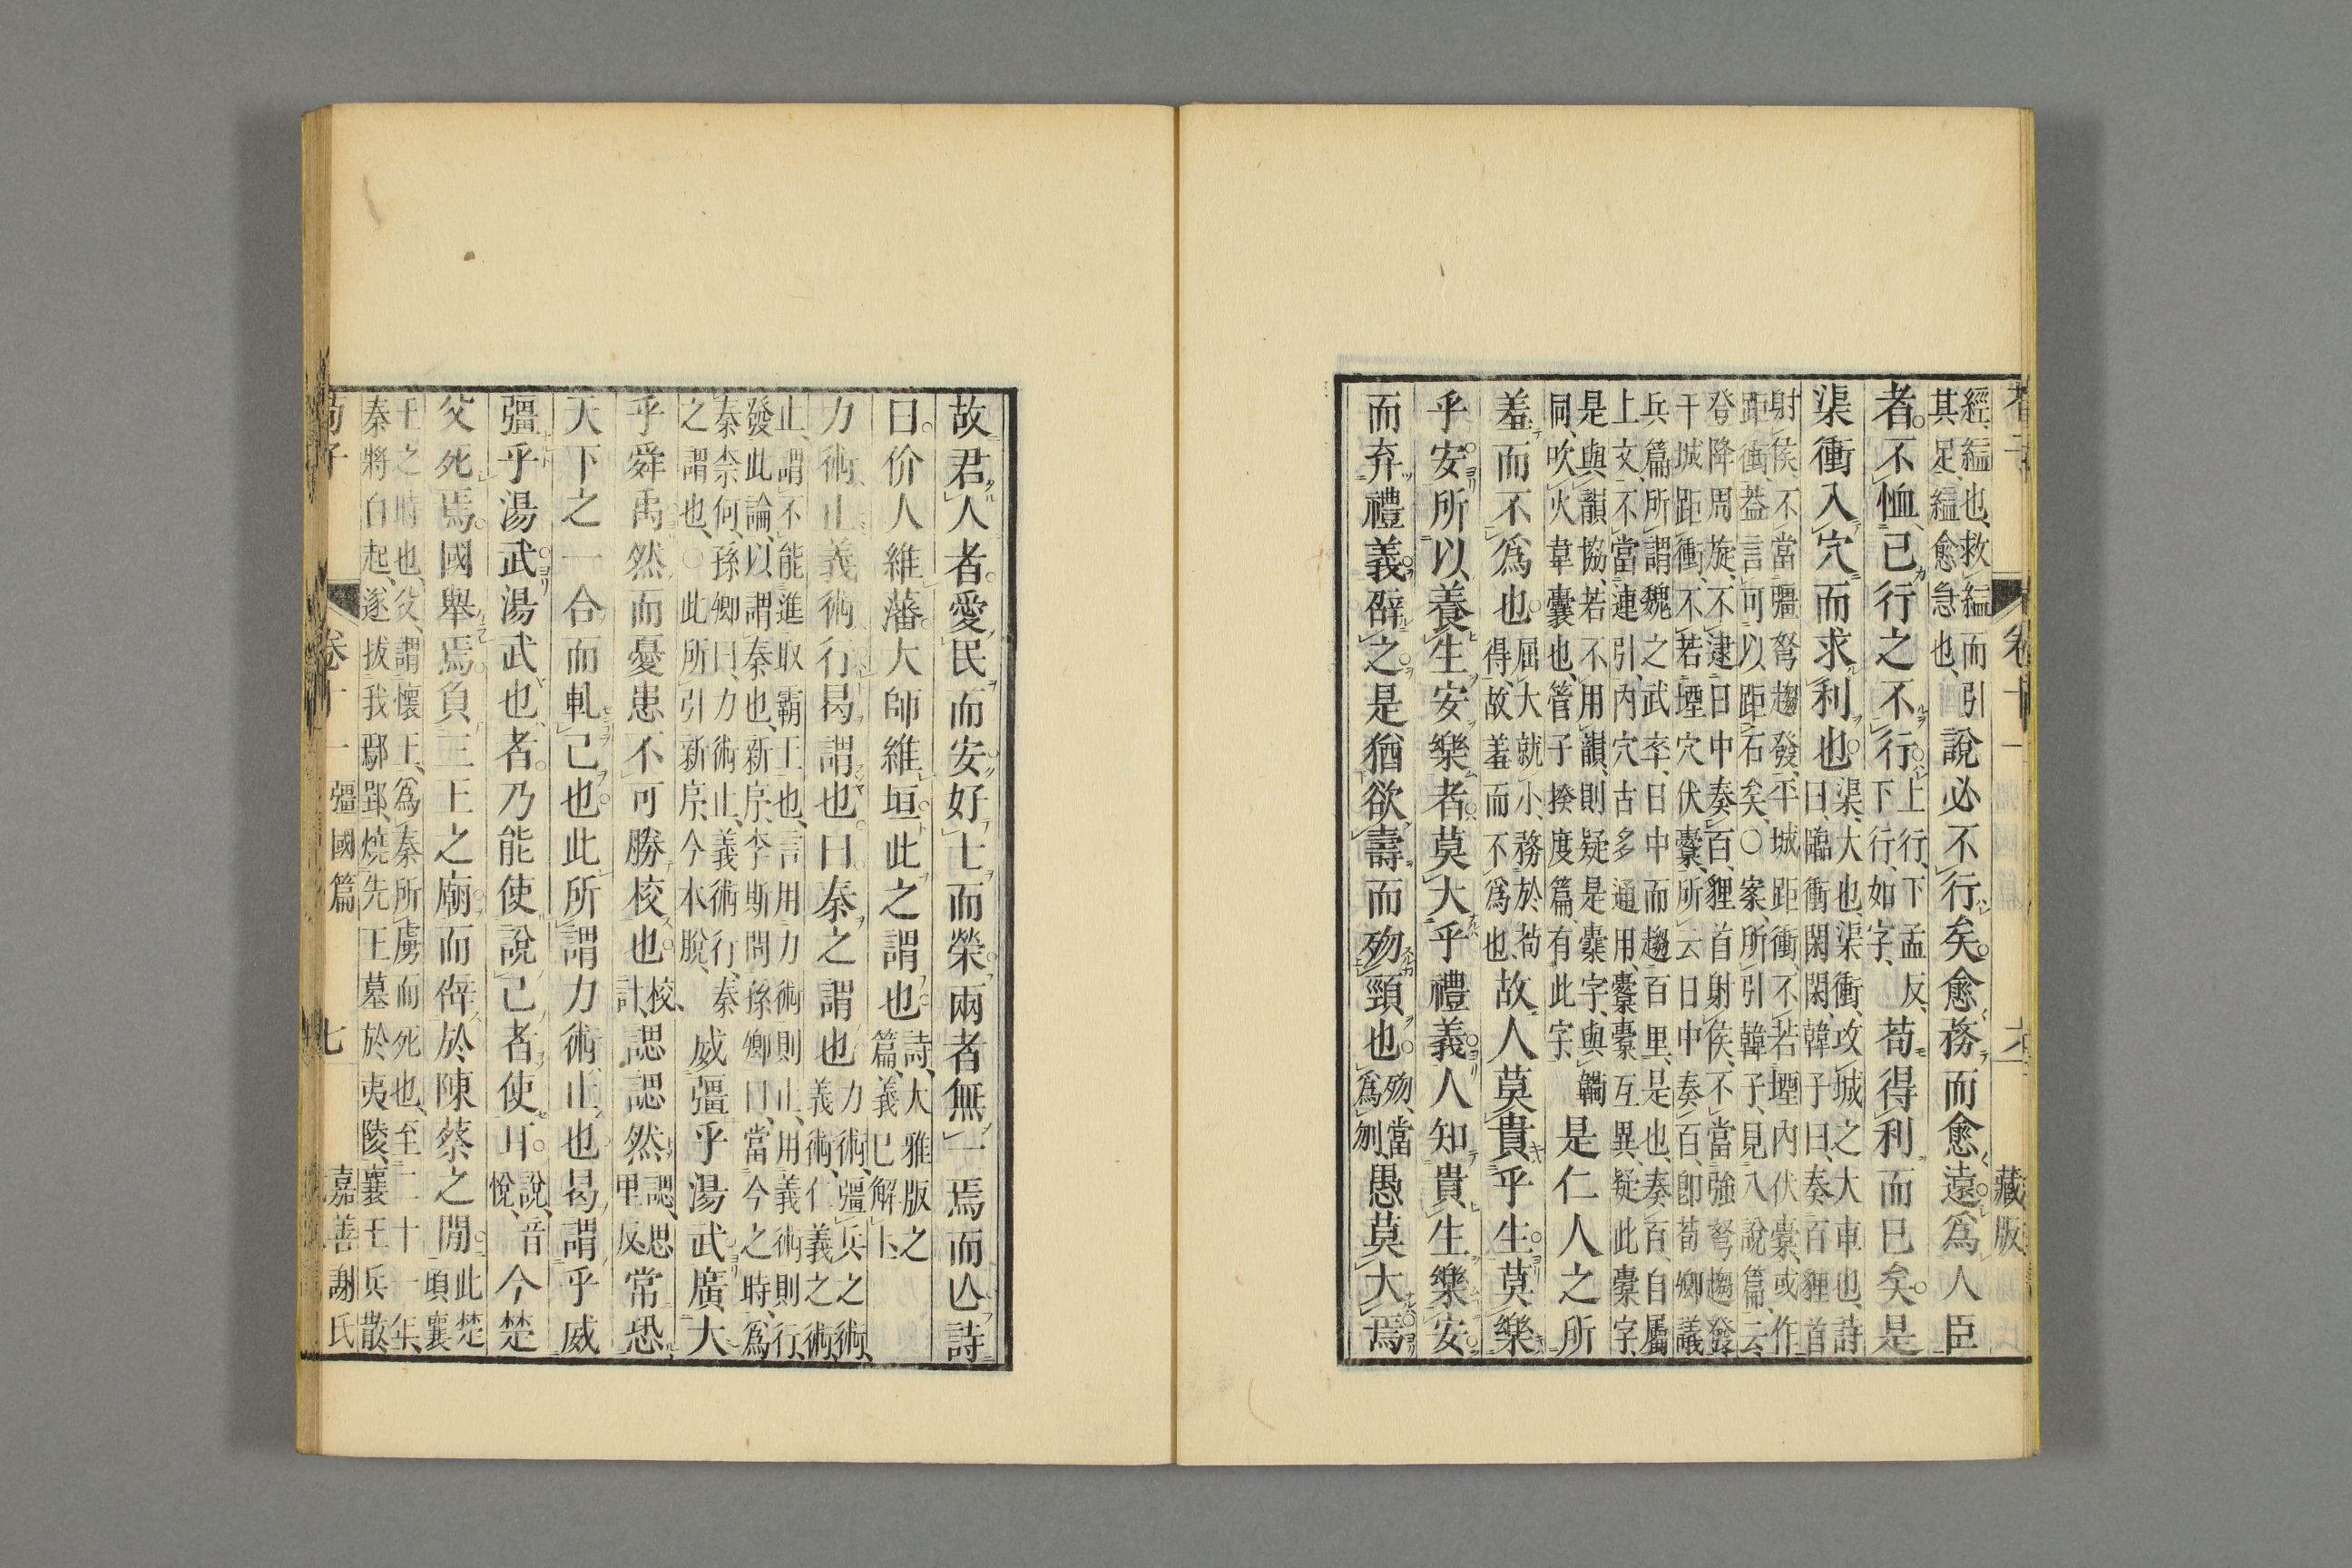 經縊也、救縊而引
其足、縊愈急也、
說必不行矣愈務而愈遠爲人臣
者不恤己行之不行
上行、下孟反、
下行、如字、
苟得利而已矣是
渠衝入穴而求利也
渠、大也、渠衝、攻城之大車也、詩
曰、臨衝閑閑、韓子曰、奏百貍首
射侯、不當彊弩趨發、平城距衝、不若堙內伏橐、或作
距衝、葢言可以距石矣、〇案、所引韓子、見八說篇、云、
登降周旋、不逮日中奏百、貍首射侯、不當強弩趨發、
干城距衝、不若堙穴伏橐、所云日中奏百、卽荀卿議
兵篇、所謂魏之武卒、日中而趨百里、是也、奏百、自屬
上文、不當連引、內穴古多通用、橐橐互異、疑此橐字、
是與韻協、若不用韻、則疑是橐字、與韛
同、吹火韋囊也、管子揆度篇、有此字、
是仁人之所
羞而不爲也
屈大就小、務於苟
得、故羞而不爲也、
故人莫貴乎生莫樂
乎安所以養生安樂者莫大乎禮義人知貴生樂安
而弃禮義辟之是猶欲壽而歾頸也
歾、當
爲刎、
愚莫大焉
卷十一
六
藏版
故君人者愛民而安好士而榮兩者無一焉而亾詩
曰价人維藩大師維垣此之謂也
詩、大雅版之
篇、義已解上、
力術止義術行曷謂也曰秦之謂也
力術、彊兵之術、
義術、仁義之術、
止、謂不能進取霸王也、言用力術則止、用義術則行、
發此論、以謂秦也、新序、李斯問孫卿曰、當今之時、爲
秦柰何、孫卿曰、力術止、義術行、秦
之謂也、〇此所引新序、今本脫、
威彊乎湯武廣大
乎舜禹然而憂患不可勝校也
校、
計、
諰諰然
諰、思
甲反、
常恐
天下之一合而軋己也此所謂力術止也曷謂乎威
彊乎湯武湯武也者乃能使說己者使耳
說、音
悅、
今楚
父死焉國舉焉負三王之廟而辟於陳蔡之閒
此楚
頃襄
王之時也、父、謂懷王、爲秦所虜而死也、至二十一年、
秦將白起、遂拔我鄢郢、燒先王墓於夷陵、襄王兵散
荀子
卷十一
彊國篇
七
嘉善謝氏